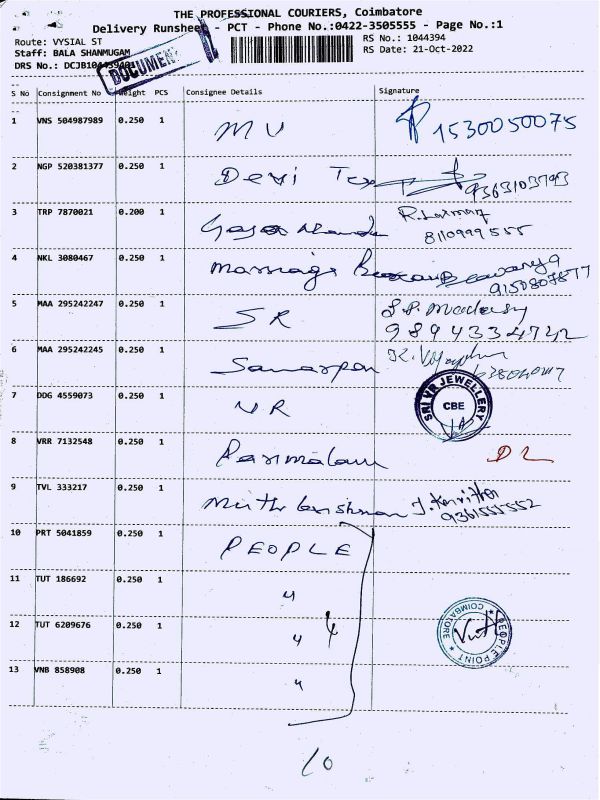 THE PROFESSIONAL COURIERS, Coimbatore
Delivery Runsheet - PCT - Phone No.:0422-3505555 - Page No.:1
Route: VYSIAL ST
RS No.: 1044394
Staff: BALA SHANMUGAM
RS Date: 21-Oct-2022
DRS No.: 
DOCUMENT
S No Consignment No Weight PCS Consignee Details Signature
1 VNS 504987989 0.250 1 MU 1530050075
2 NGP 520381377 0.250 1 Devi Tex
3 TRP 7870021 0.200 1
8110999555
4 NKL 3080467 0.250 1 Marriage
5 MAA 295242247 0.250 1 SR
6 MAA 295242245 0.250 1
7 DDG 4559073 0.250 1 NR
SRI VR JEWELLERY
CBE
8 VRR 7132548 0.250 1 Parimalam
9 TVL 333217 0.250 1
10 PRT 5041859 0.250 1 PEOPLE
11 TUT 186692 0.250 1 "
12 TUT 6209676 0.250 1 " 4
PEOPLE POINT
COIMBATORE
13 VNB 858908 0.250 1 "
10